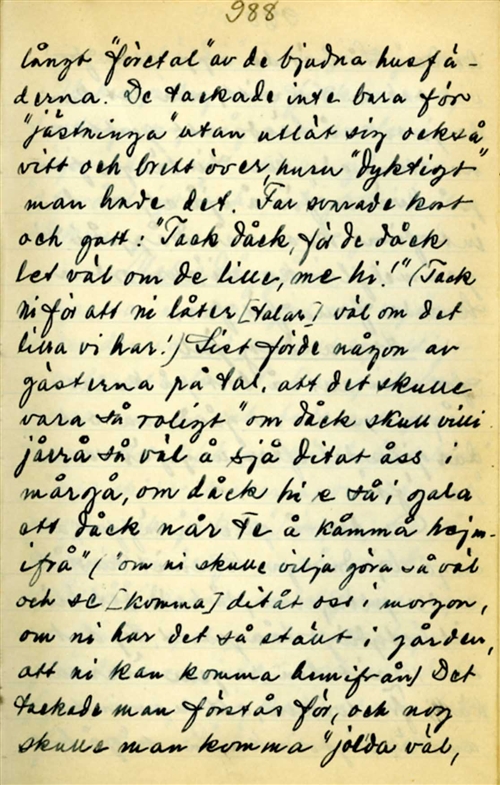 988
långt "företal" av de bjudna husfä-
derna. De tackade inte bara för
"jästninga" utan utlät sig också
vitt och brett över, huru "dyktigt"
man hade det. Far svarade kort
och gott: "Tack dåck, för de dåck
let väl om de lille, me hi!" (Tack
ni för att ni låter [talar] väl om det
lilla vi har!) Sist förde någon av
gästerna på tal, att det skulle
vara så roligt "om dåck skull villi
jårrå så väl å sjå ditat åss i
mårgå, om dåck hi e så i gala
att dåck når te å kåmmå hejm-
ifrå" ("om ni skulle vilja göra så väl
och se [komma] ditåt oss i morgon,
om ni har det så ställt i gården,
att ni kan komma hemifrån) Det
tackade man förstås för, och nog
skulle man komma "jölda väl,